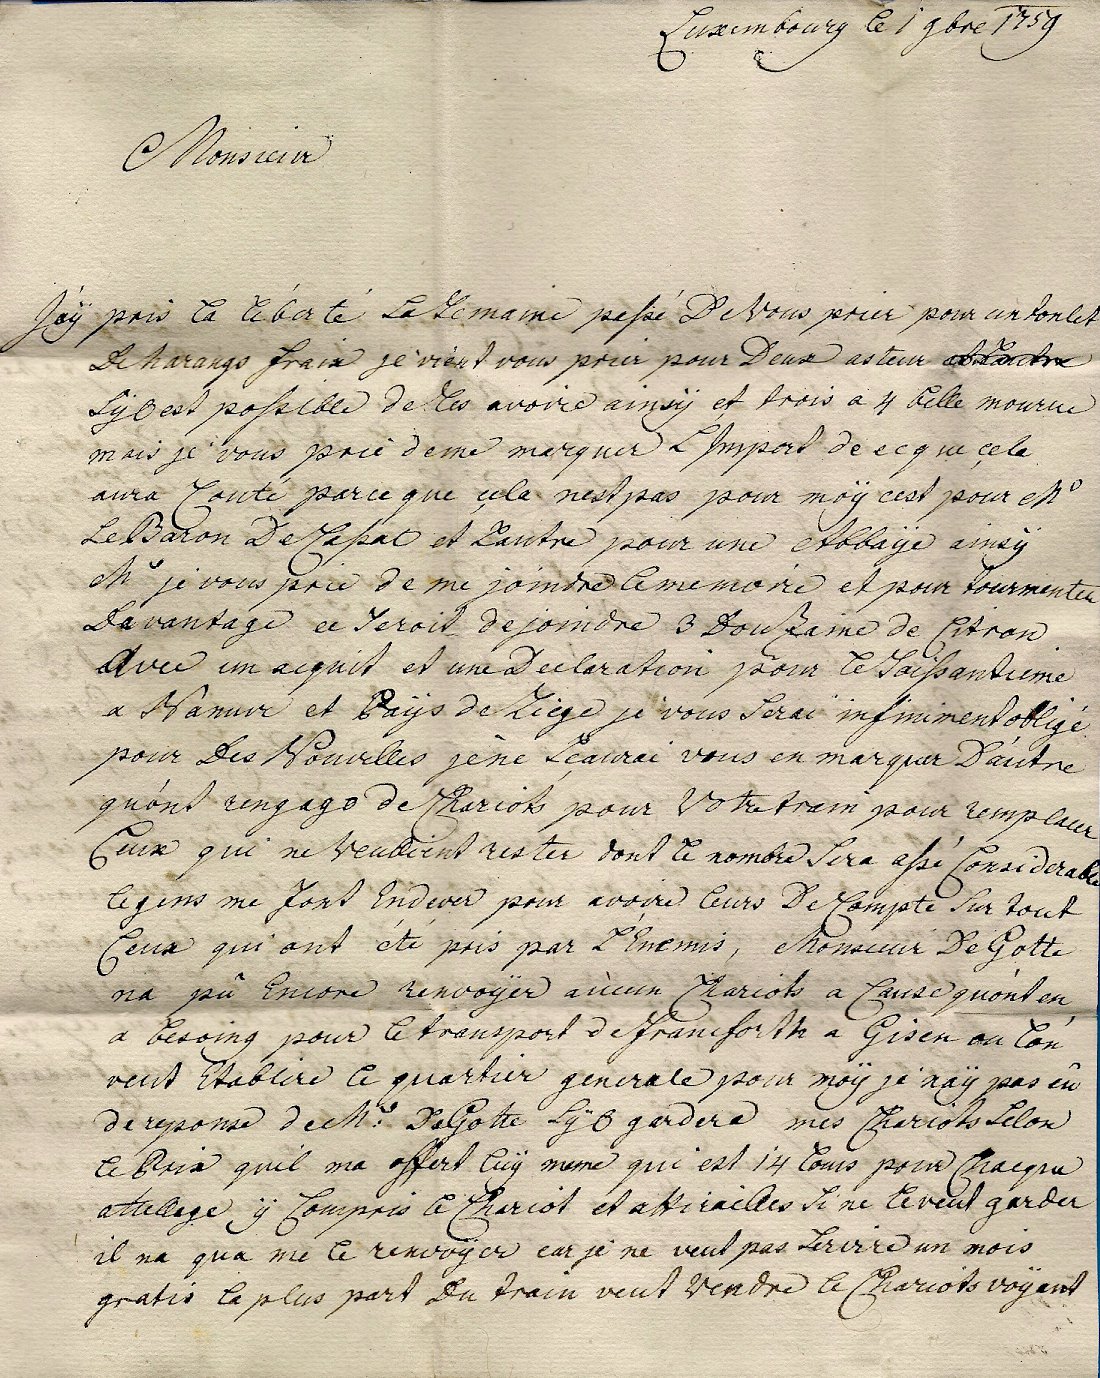 Luxembourg le 1 9bre 1759
Monsieur
J'aÿ pris la liberté La Semaine passé De Vous prier pour un tonlet
De harangs fraix je vient vous prier pour Deux asteur
Sÿ est possible de les avoire ainsÿ et trois a 4 belle mourue
mais je vous prie deme marquer L'Import de ce que çela
aura Couté parce que çela nest pas pour moÿ cest pour Mr
Le Baron De et Lautre pour une Abbaÿe ainsÿ
Mr je vous prie de me joindre le memoire et pour tourmenter
Davantage ce Seroit de joindre 3 Douzaine de Citron
Avec un acquit et une Declaration pour le Soissantieme
a Namure et Païs de Liege je vous Serai infiniment obligé
pour Des Nouvelles je ne Sçaurai vous en marquer D'autre
qu'ont rengage de Chariots pour Votre train pour remplacer
Ceux qui ne veullient rester dont le nombre Sera assé Considerable
le gens me font Endever pour avoire leurs De Compte Sur tout
Ceux qui ont été pris par L'Enemis, Monsieur De Gotte
na pû Encore renvoÿer aucun Chariots a Cause qu'ont en
a besoing pour le transport de Francforth a Gisen ou l'on
veut Etablire le quartier generale pour moÿ je n'aÿ pas eû
de reponse de Mr: De Gotte Sÿ gardera mes Chariots Selon
le Prix quil ma offert luÿ meme qui est 14 Louis pour Chacque
attellage ÿ Compris le Chariot et attirailles Si ne le veut garder
il na qua me le renvoÿer car je ne veut pas Servire un mois
gratis la plus part Du train veut Vendre le Chariots voÿant